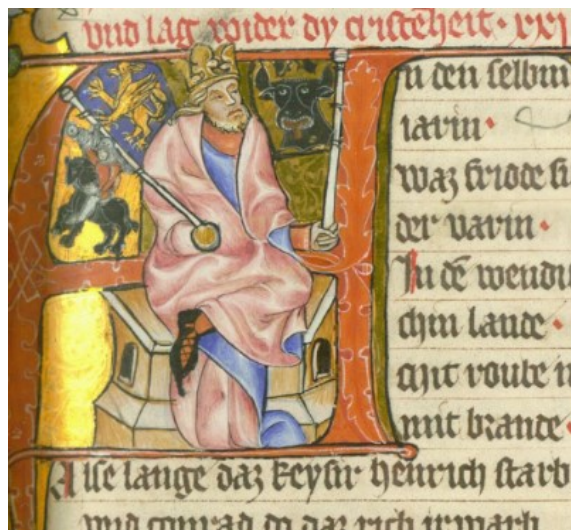 vnd lag wider dy cristēheit · xxi
n den selbin
iarin ·
waz
der warin ·
In dē wendi
chin lande ·
mit
mit brande ·
Alse lange daz keysir heinrich starb
vnd conrad do daz rich irwarb